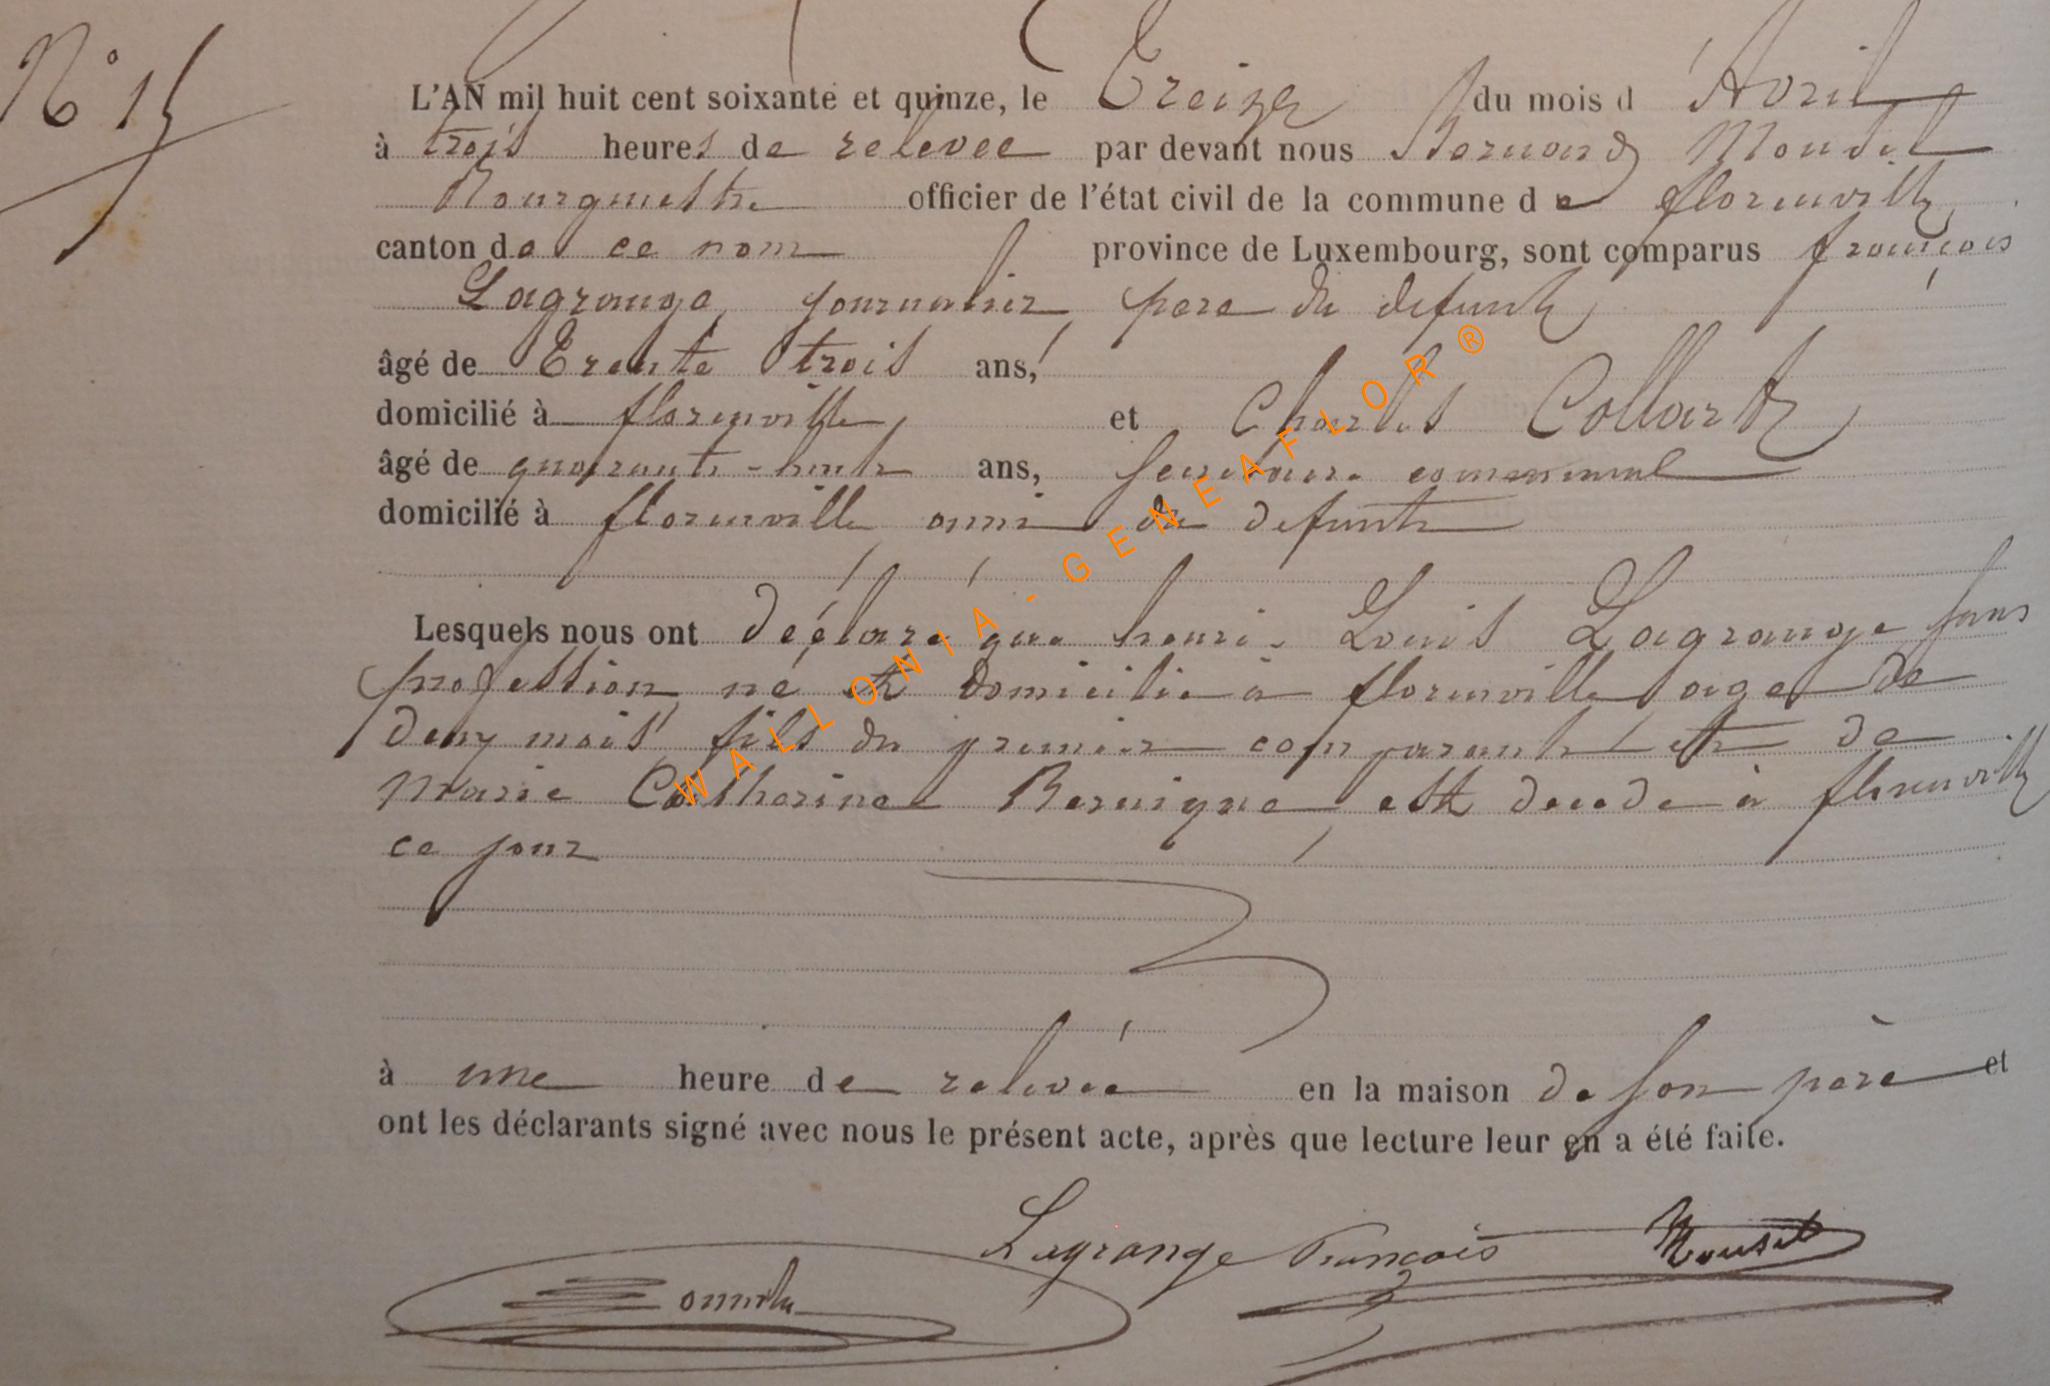 N° 15
L'AN mil huit cent soixante et quinze, le Treize du mois d'Avril
à trois heures de relevée par devant nous Bernard Mousel
Bourgmestre officier de l'état civil de la commune de florenville
canton de ce nom province de Luxembourg, sont comparus françois
Lagrange, journalier, père du defunt
âgé de Trente trois ans,
domicilié à florenville, et Charles Collart
âgé de quarante-huit ans, secretaire communal
domicilié à florenville ami du defunt
Lesquels nous ont déclaré que henri Louis Lagrange sans
profession né et domicilié à florenville age de
deux mois fils du premier comparant et de
Marie Catherine est decede à florenville
ce jour
à une heure de relevée en la maison de son père et
ont les déclarants signé avec nous le présent acte, après que lecture leur en a été faite.
Lagrange François Mousel
WALLONIA-GENEAFLOR®